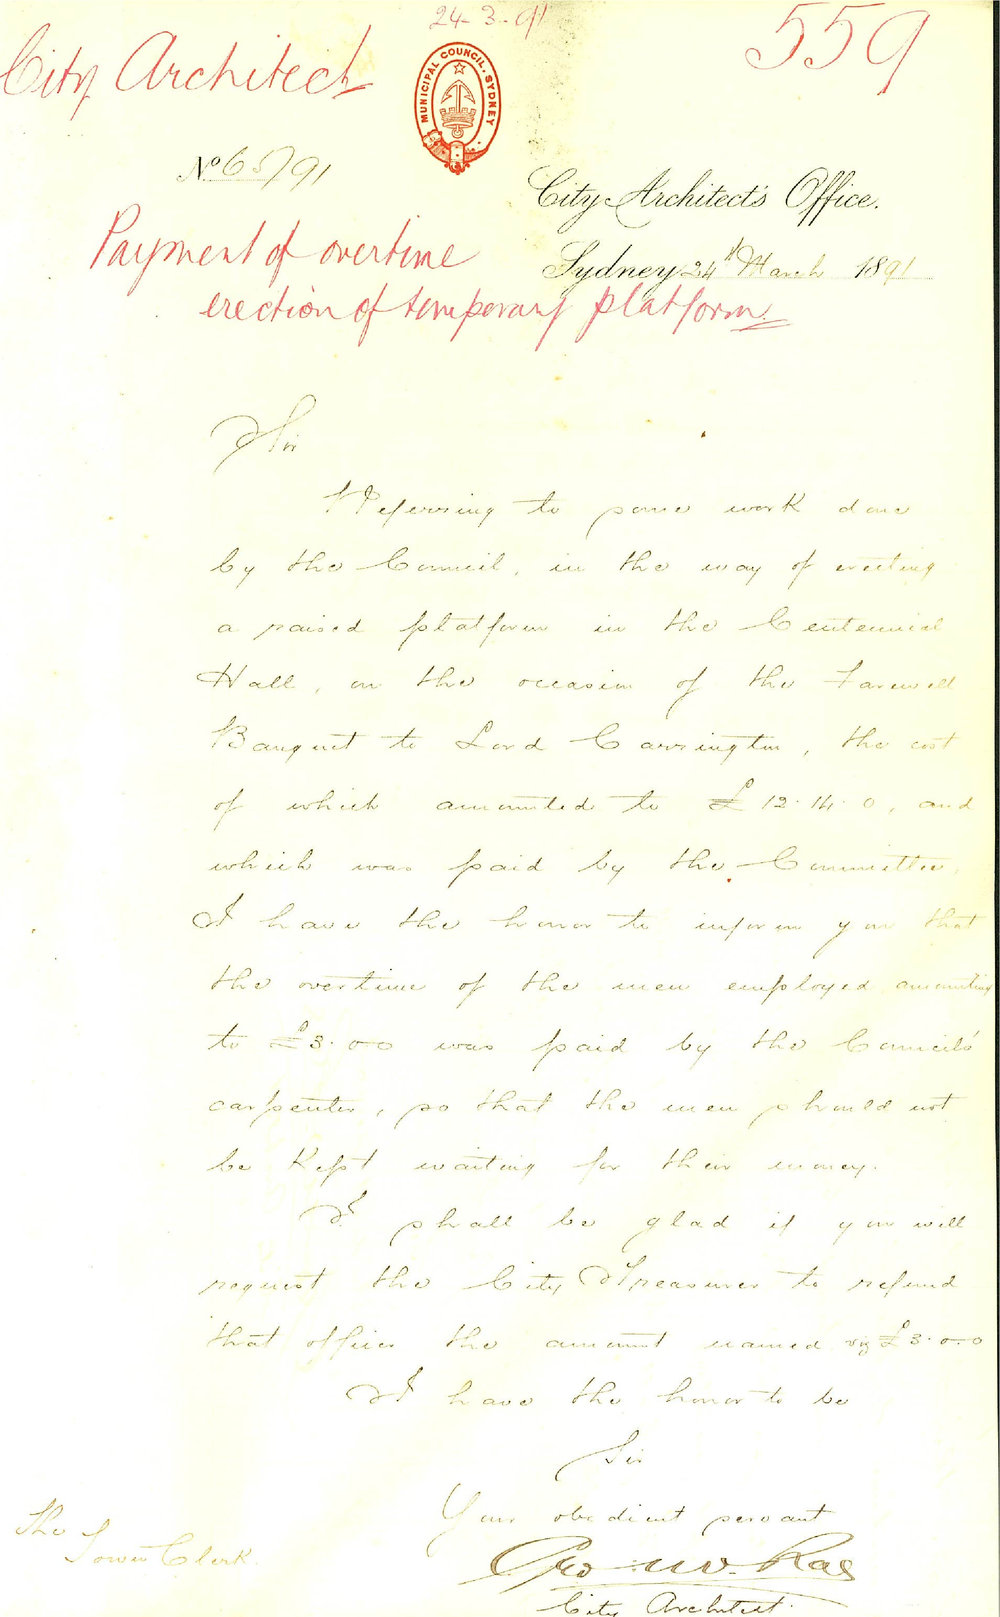 24-3-91
559
City Architect
MUNICIPAL COUNCIL. SYDNEY
No 65/91
City Architect's Office.
Sydney 24th March 1891
Payment of overtime
erection of temporary platform
Sir
Referring to some work done
by the Council, in the way of erecting
a raised platform in the Centennial
Hall, on the occasion of the Farewell
Banquet to Lord Carrington, the cost
of which amounted to £12.14.0, and
which was paid by the Committee.
I have the honor to inform you that
the overtime of the men employed amounting
to £3.0.0 was paid by the Council's
carpenter, so that the men should not
be kept waiting for their money.
I shall be glad if you will
request the City Treasurer to refund
that officer the amount named viz £3.0.0
I have the honor to be
Sir
Your obedient servant
Geo. McRae
City Architect.
The
Town Clerk.